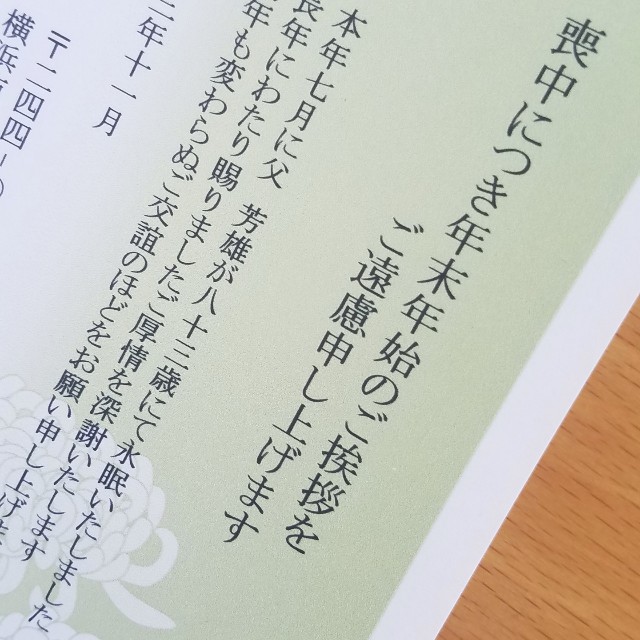 喪中につき年末年始のご挨拶を
ご遠慮申し上げます
本年七月に父 芳雄が八十三歳にて永眠いたしました
長年にわたり賜りましたご厚情を深謝いたします
年も変わらぬご交誼のほどをお願い申し上げます
二年十一月
〒二四四-〇
横浜